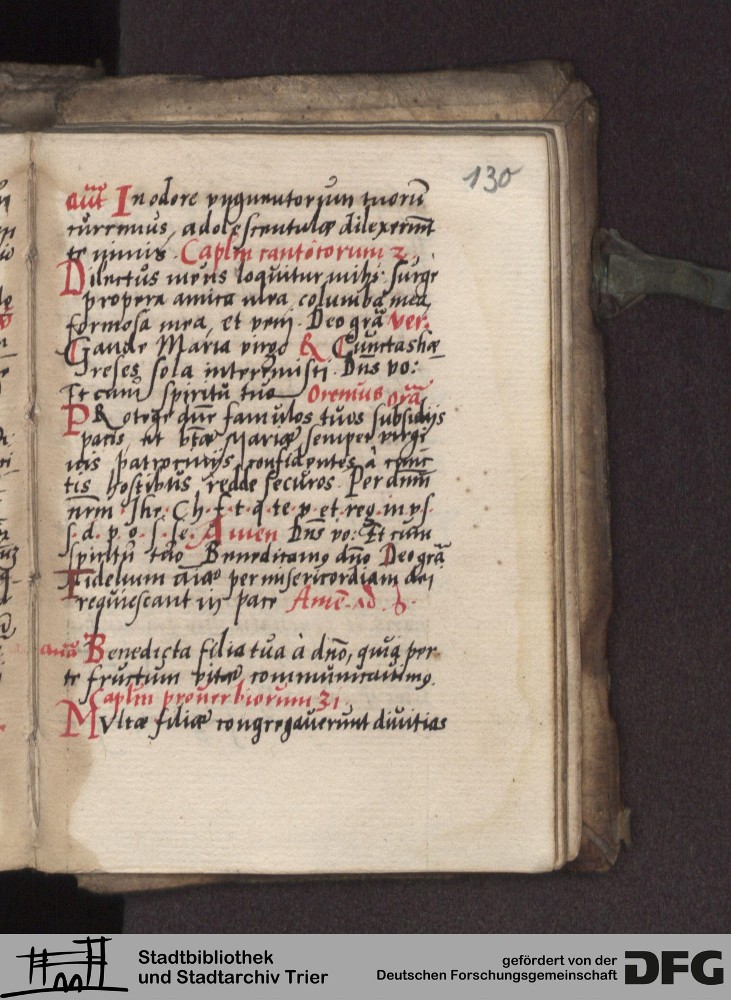 130
añã In odore vnguentorum tuorũ
currimus, adolescentulæ dilexerũt
te nimis. Caplm canticorum 2,
Dilectus meus loquitur mihi: surge
propera amica mea, columba mea,
formosa mea, et veni. Deo grã ver.
Gaude Maria virgo R Cunctas hæ
reses sola interemisti. Dñs vo:
Et cum spiritu tuo Oremus orã
PRotege dñe famulos tuos subsidijs
pacis, et btæ Mariæ semper virgi
nis patrocinijs confidentes à cunc
tis hostibus redde securos. Per dnm̃
nr̃m Ihe. Ch. f. t. q. te. p. et reg. in v. s.
s. d. p. o. s. se. Amen Dñs vo: Et cum
spiritu tuo Benedicamo dño Deo grã
Fidelium aĩæ per misericordiam dei
requiescant in pace Amẽ. Ad. 6.
añã Benedicta filia tua à dño, quia per
te fructum vitæ communicauimo.
Caplm prouerbiorum 31.
Multæ filiæ congregauerunt diuitias
Stadtbibliothek
und Stadtarchiv Trier
gefördert von der
Deutschen Forschungsgemeinschaft
DFG